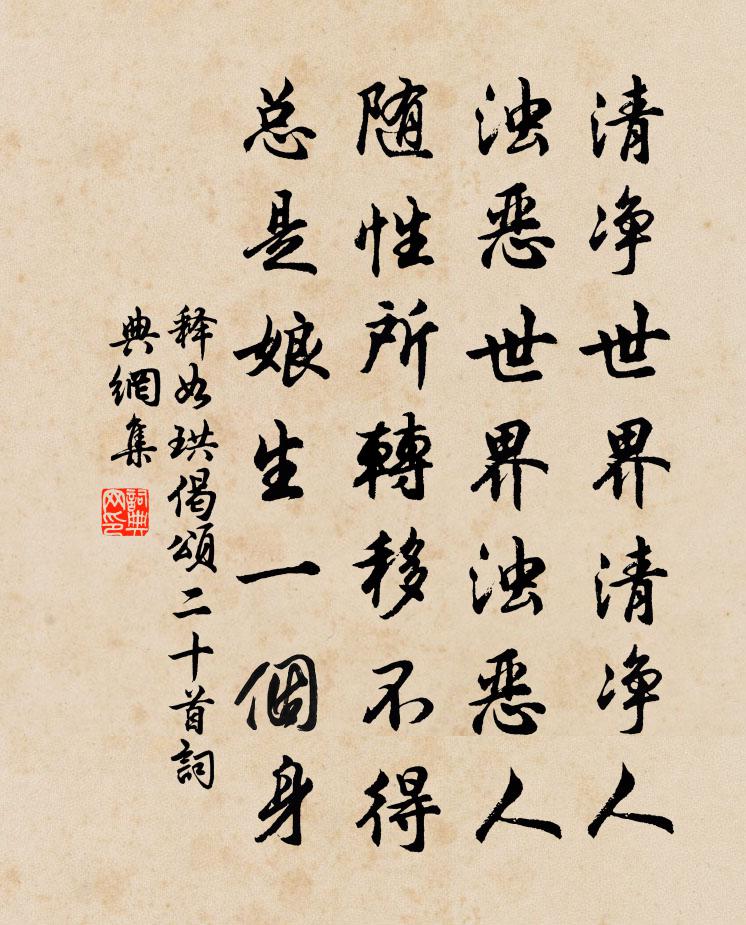 清净世界清净人
浊恶世界浊恶人
随性所轉移不得
总是娘生一個身
释如珙偈頌二十首詞
典網集
詞典
网印